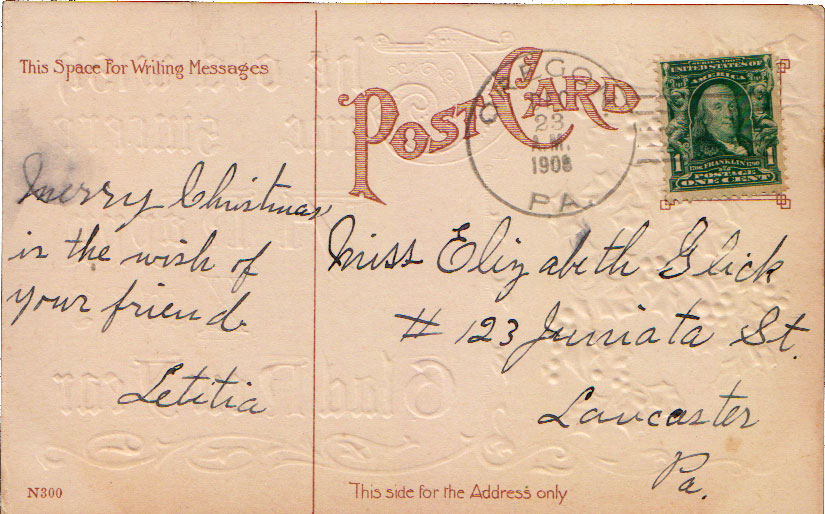 This Space For Writing Messages
POST CARD
23
A.M.
1908
PA.
SERIES 1902
UNITED STATES OF
AMERICA
1 1706 FRANKLIN 1790 1
POSTAGE
ONE CENT
Merry Christmas
is the wish of
your friend
Letitia
Miss Elizabeth Glick
# 123 Juniata St.
Lancaster
Pa.
N300
This side for the Address only